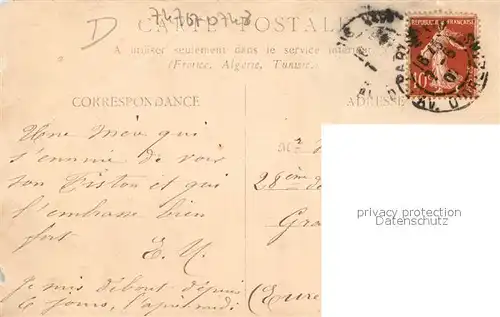 74767-0743
D
CARTE POSTALE
A utiliser seulement dans le service intérieur
(France, Algérie, Tunisie).
REPUBLIQUE FRANÇAISE
10
PARIS
AV. D'
CORRESPONDANCE
ADRESSE
Une Mère qui
s'ennuie de voir
son Fiston et qui
l'embrasse bien
fort
E. U.
Je mis debout depuis
6 jours, l'après midi
Mr
28ème
de
Gra
(Eure
privacy protection
Datenschutz